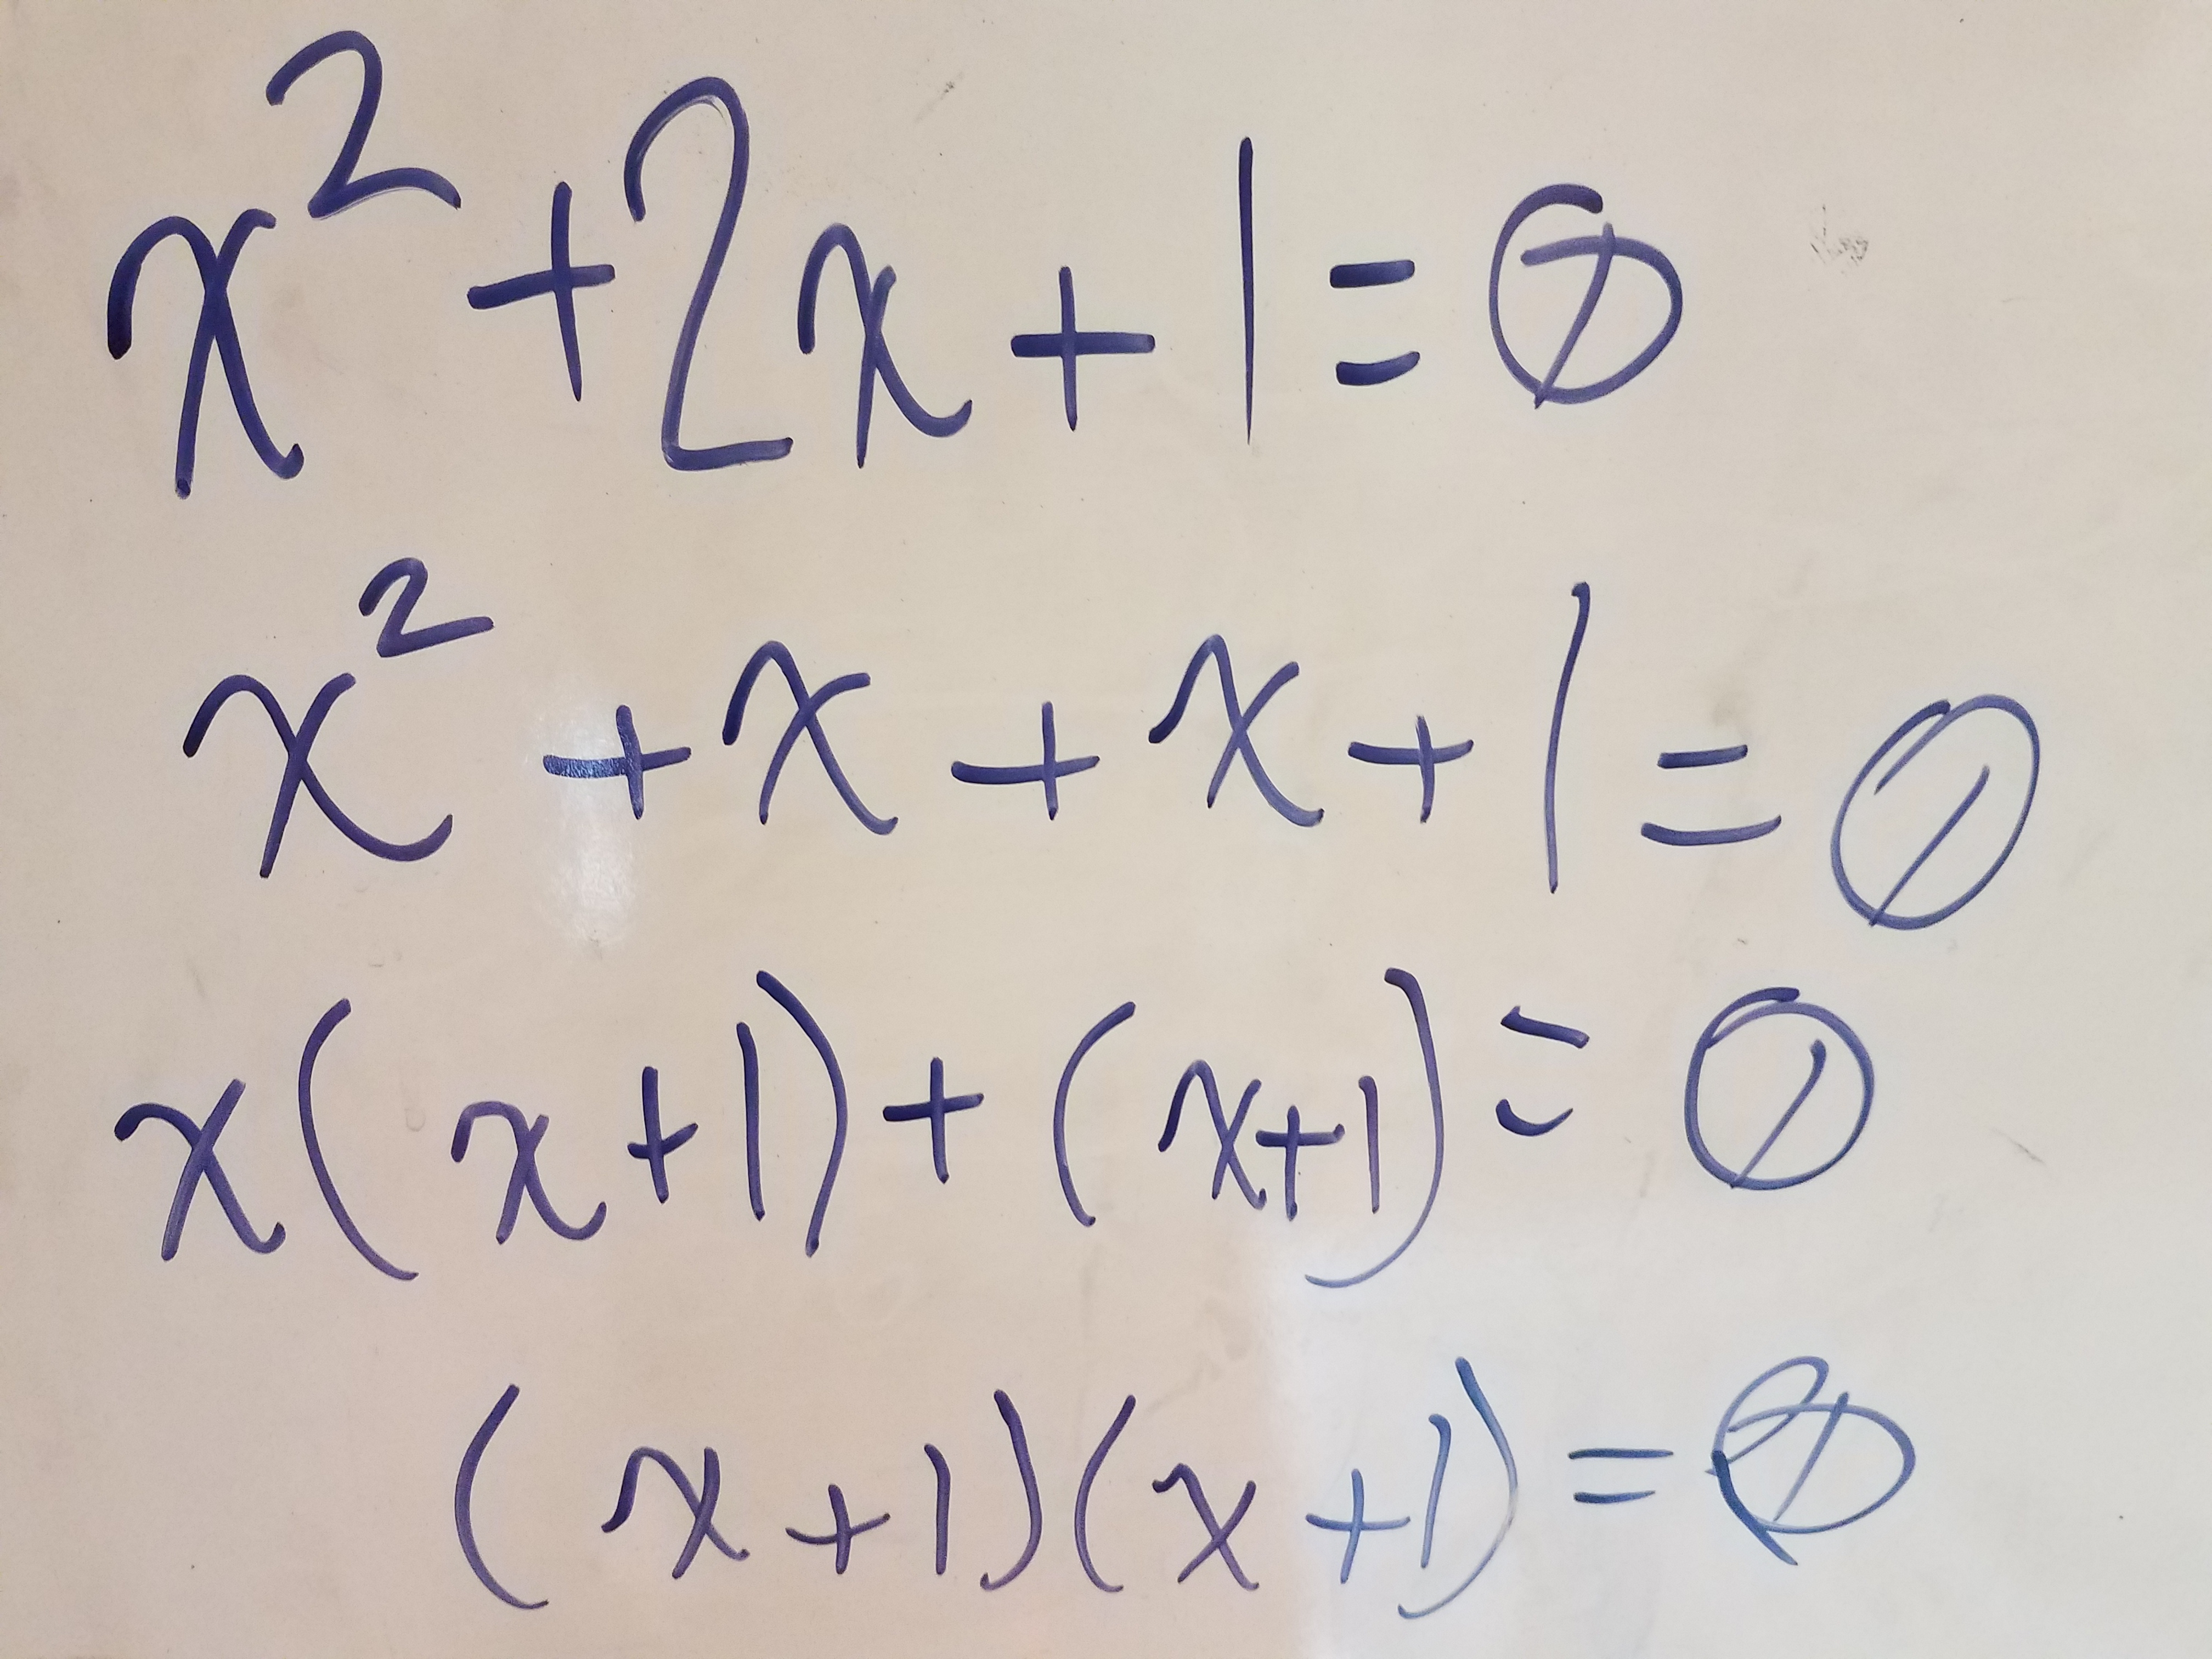 x² + 2x + 1 = 0
x² + x + x + 1 = 0
x(x+1) + (x+1) = 0
(x+1)(x+1) = 0